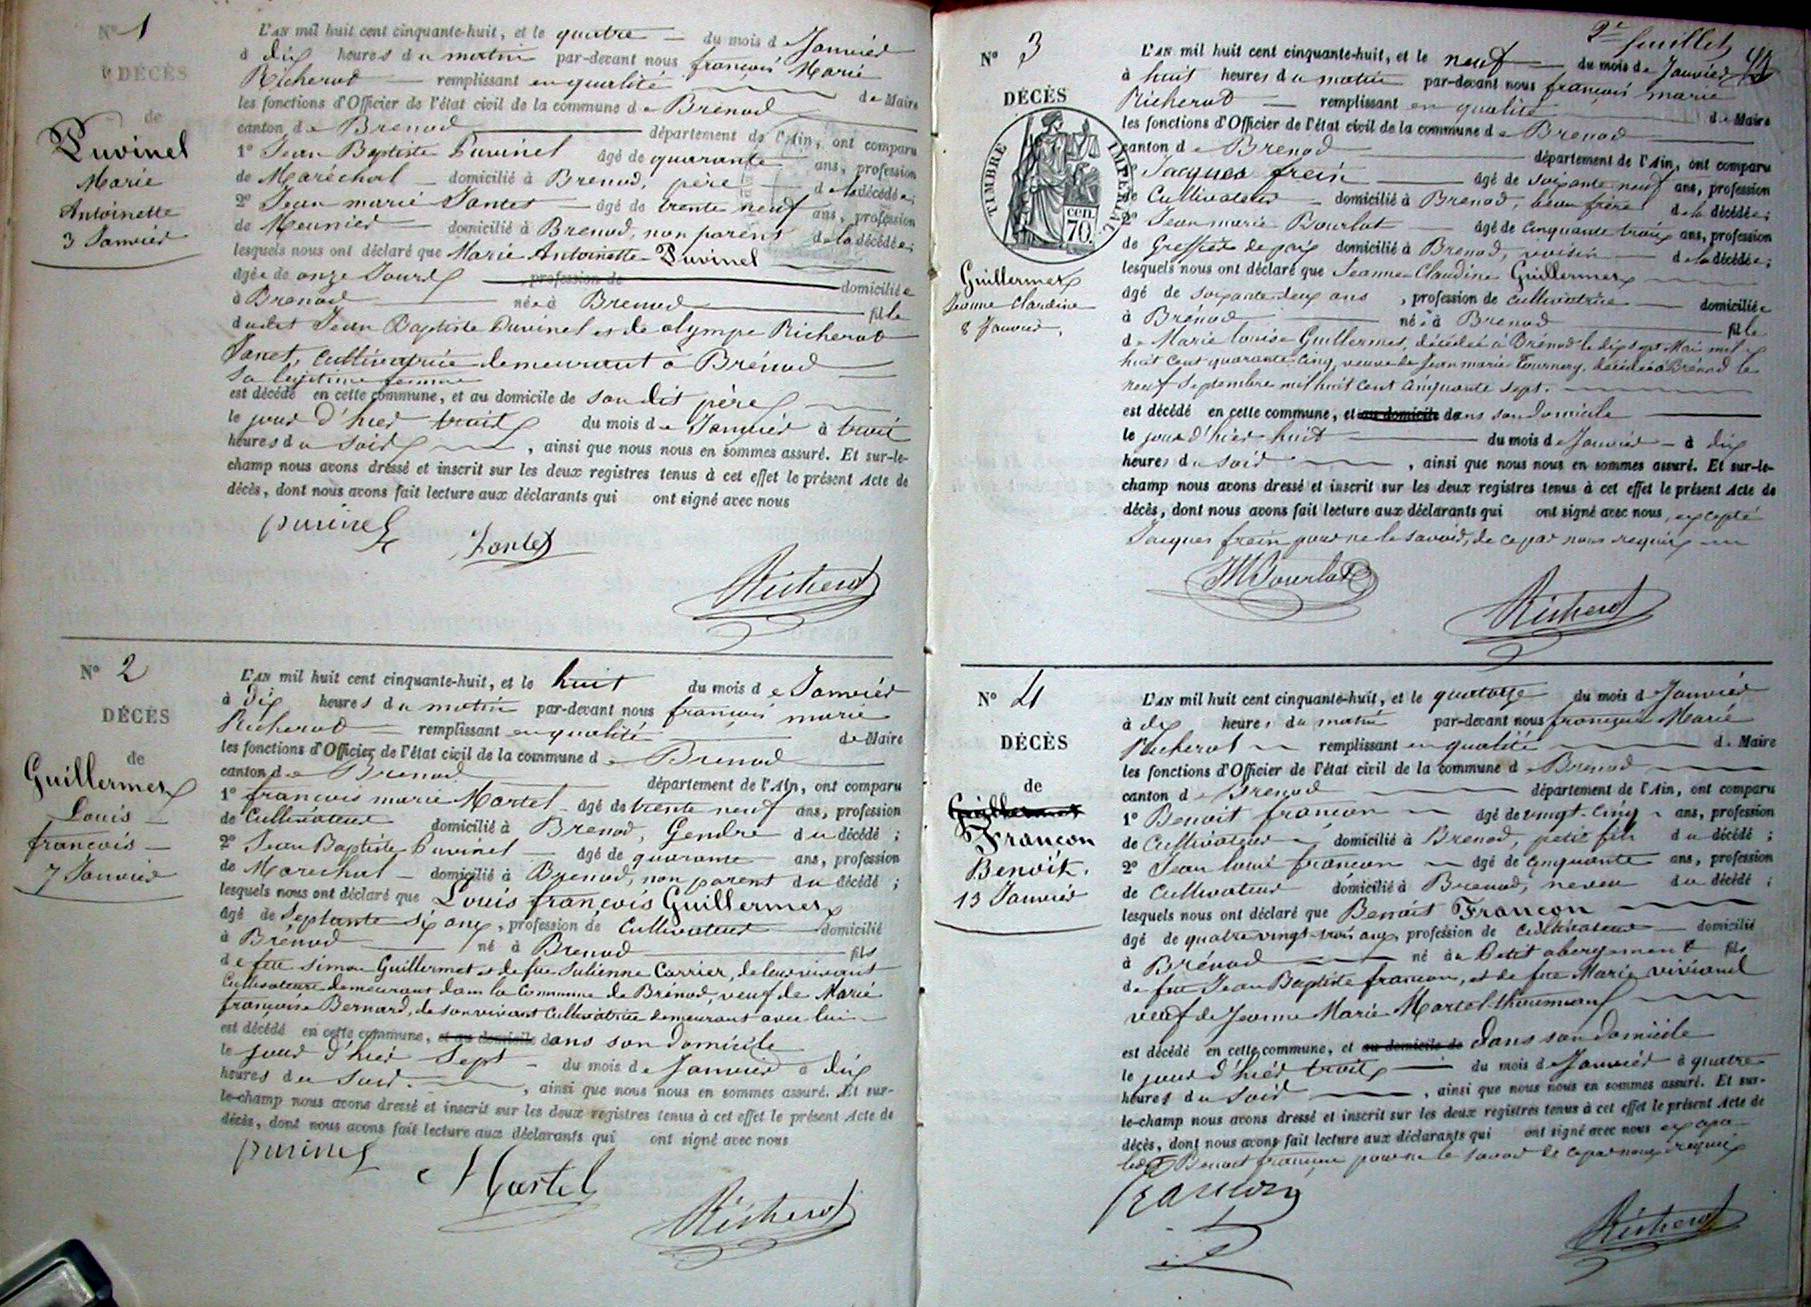 N° 1
DÉCÈS
de
Puvinel
Marie
Antoinette
3 Janvier
L'AN mil huit cent cinquante-huit, et le quatre du mois de Janvier
à dix heures du matin par-devant nous françois Marie
Richerot remplissant en qualité de Maire
les fonctions d'Officier de l'état civil de la commune de Brénod
canton de Brenod département de l'Ain, ont comparu
1° Jean Baptiste Puvinel âgé de quarante ans, profession
de Maréchal domicilié à Brenod, père de la décédée;
2° Jean marie Jantet âgé de trente neuf ans, profession
de Meunier domicilié à Brenod, non parent de la décédée;
lesquels nous ont déclaré que Marie Antoinette Puvinel
âgée de onze Jours profession de domiciliée
à Brenod née à Brenod fille
dudit Jean Baptiste Puvinel et de olympe Richerot
Janet, cultivatrice demeurant à Brénod
sa légitime femme
est décédé en cette commune, et au domicile de son dit père
le jour d'hier trois du mois de Janvier à trois
heures du soir, ainsi que nous nous en sommes assuré. Et sur-le-
champ nous avons dressé et inscrit sur les deux registres tenus à cet effet le présent Acte de
décès, dont nous avons fait lecture aux déclarants qui ont signé avec nous
puvinel Jantet
Richerot
N° 2
DÉCÈS
de
Guillermet
Louis
françois
7 Janvier
L'AN mil huit cent cinquante-huit, et le huit du mois de Janvier
à dix heures du matin par-devant nous françois marie
Richerot remplissant en qualité de Maire
les fonctions d'Officier de l'état civil de la commune de Brenod
canton de Brenod département de l'Ain, ont comparu
1° françois marie Martel âgé de trente neuf ans, profession
de Cultivateur domicilié à Brenod, Gendre du décédé;
2° Jean Baptiste Puvinel âgé de quarante ans, profession
de Marechal domicilié à Brenod, non parent du décédé;
lesquels nous ont déclaré que Louis françois Guillermet
âgé de septante six ans, profession de Cultivateur domicilié
à Brénod né à Brenod fils
de feu simon Guillermet et de fue Julienne Carrier, de leur vivant
Cultivateurs demeurant dans la Commune de Brénod, veuf de Marie
françoise Bernard, de son vivant Cultivatrice demeurant avec lui
est décédé en cette commune, et au domicile dans son domicile
le jour d'hier sept du mois de Janvier à dix
heures du soir, ainsi que nous nous en sommes assuré. Et sur-
le-champ nous avons dressé et inscrit sur les deux registres tenus à cet effet le présent Acte de
décès, dont nous avons fait lecture aux déclarants qui ont signé avec nous
puvinel
Martel
Richerot
2e feuillet
N° 3
DÉCÈS
TIMBRE IMPÉRIAL
70 cen.
Guillermet
Jeanne Claudine
8 Janvier
L'AN mil huit cent cinquante-huit, et le neuf du mois de Janvier
à huit heures du matin par-devant nous françois marie
Richerot remplissant en qualité de Maire
les fonctions d'Officier de l'état civil de la commune de Brenod
canton de Brenod département de l'Ain, ont comparu
Jacques frein âgé de soixante neuf ans, profession
de Cultivateur domicilié à Brenod, beau frère de la décédée;
2° Jean marie Bourlot âgé de cinquante trois ans, profession
de Greffier de paix domicilié à Brenod, voisin de la décédée;
lesquels nous ont déclaré que Jeanne Claudine Guillermet
âgé de soixante deux ans, profession de cultivatrice domiciliée
à Brénod née à Brenod fille
de Marie louise Guillermet, décédée à Brénod le dix sept Mai mil
huit cent quarante cinq, veuve de Jean marie Tournery, décédé à Brénod le
neuf septembre mil huit cent cinquante sept.
est décédé en cette commune, et au domicile dans son domicile
le jour d'hier huit du mois de Janvier à dix
heures du soir, ainsi que nous nous en sommes assuré. Et sur-le-
champ nous avons dressé et inscrit sur les deux registres tenus à cet effet le présent Acte de
décès, dont nous avons fait lecture aux déclarants qui ont signé avec nous, excepté
Jacques frein pour ne le savoir, de ce par nous requis
JM Bourlot
Richerot
N° 4
DÉCÈS
de
Guillermet
Françon
Benoît.
13 Janvier
L'AN mil huit cent cinquante-huit, et le quatorze du mois de Janvier
à dix heures du matin par-devant nous françois Marie
Richerot remplissant en qualité de Maire
les fonctions d'Officier de l'état civil de la commune de Brenod
canton de Brenod département de l'Ain, ont comparu
1° Benoit françon âgé de vingt-cinq ans, profession
de Cultivateur domicilié à Brenod, petit fils du décédé;
2° Jean louis françon âgé de cinquante ans, profession
de Cultivateur domicilié à Brenod, neveu du décédé;
lesquels nous ont déclaré que Benoit Françon
âgé de quatre vingt-trois ans, profession de cultivateur domicilié
à Brénod né au Petit abergement fils
de feu Jean Baptiste françon, et de fue Marie vivianel
veuf de Jeanne Marie Martel-thoumian
est décédé en cette commune, et au domicile de dans son domicile
le jour d'hier treize du mois de Janvier à quatre
heures du soir, ainsi que nous nous en sommes assuré. Et sur-
le-champ nous avons dressé et inscrit sur les deux registres tenus à cet effet le présent Acte de
décès, dont nous avons fait lecture aux déclarants qui ont signé avec nous
Benoit françon pour ne le savoir de ce par nous requis
francon
Richerot